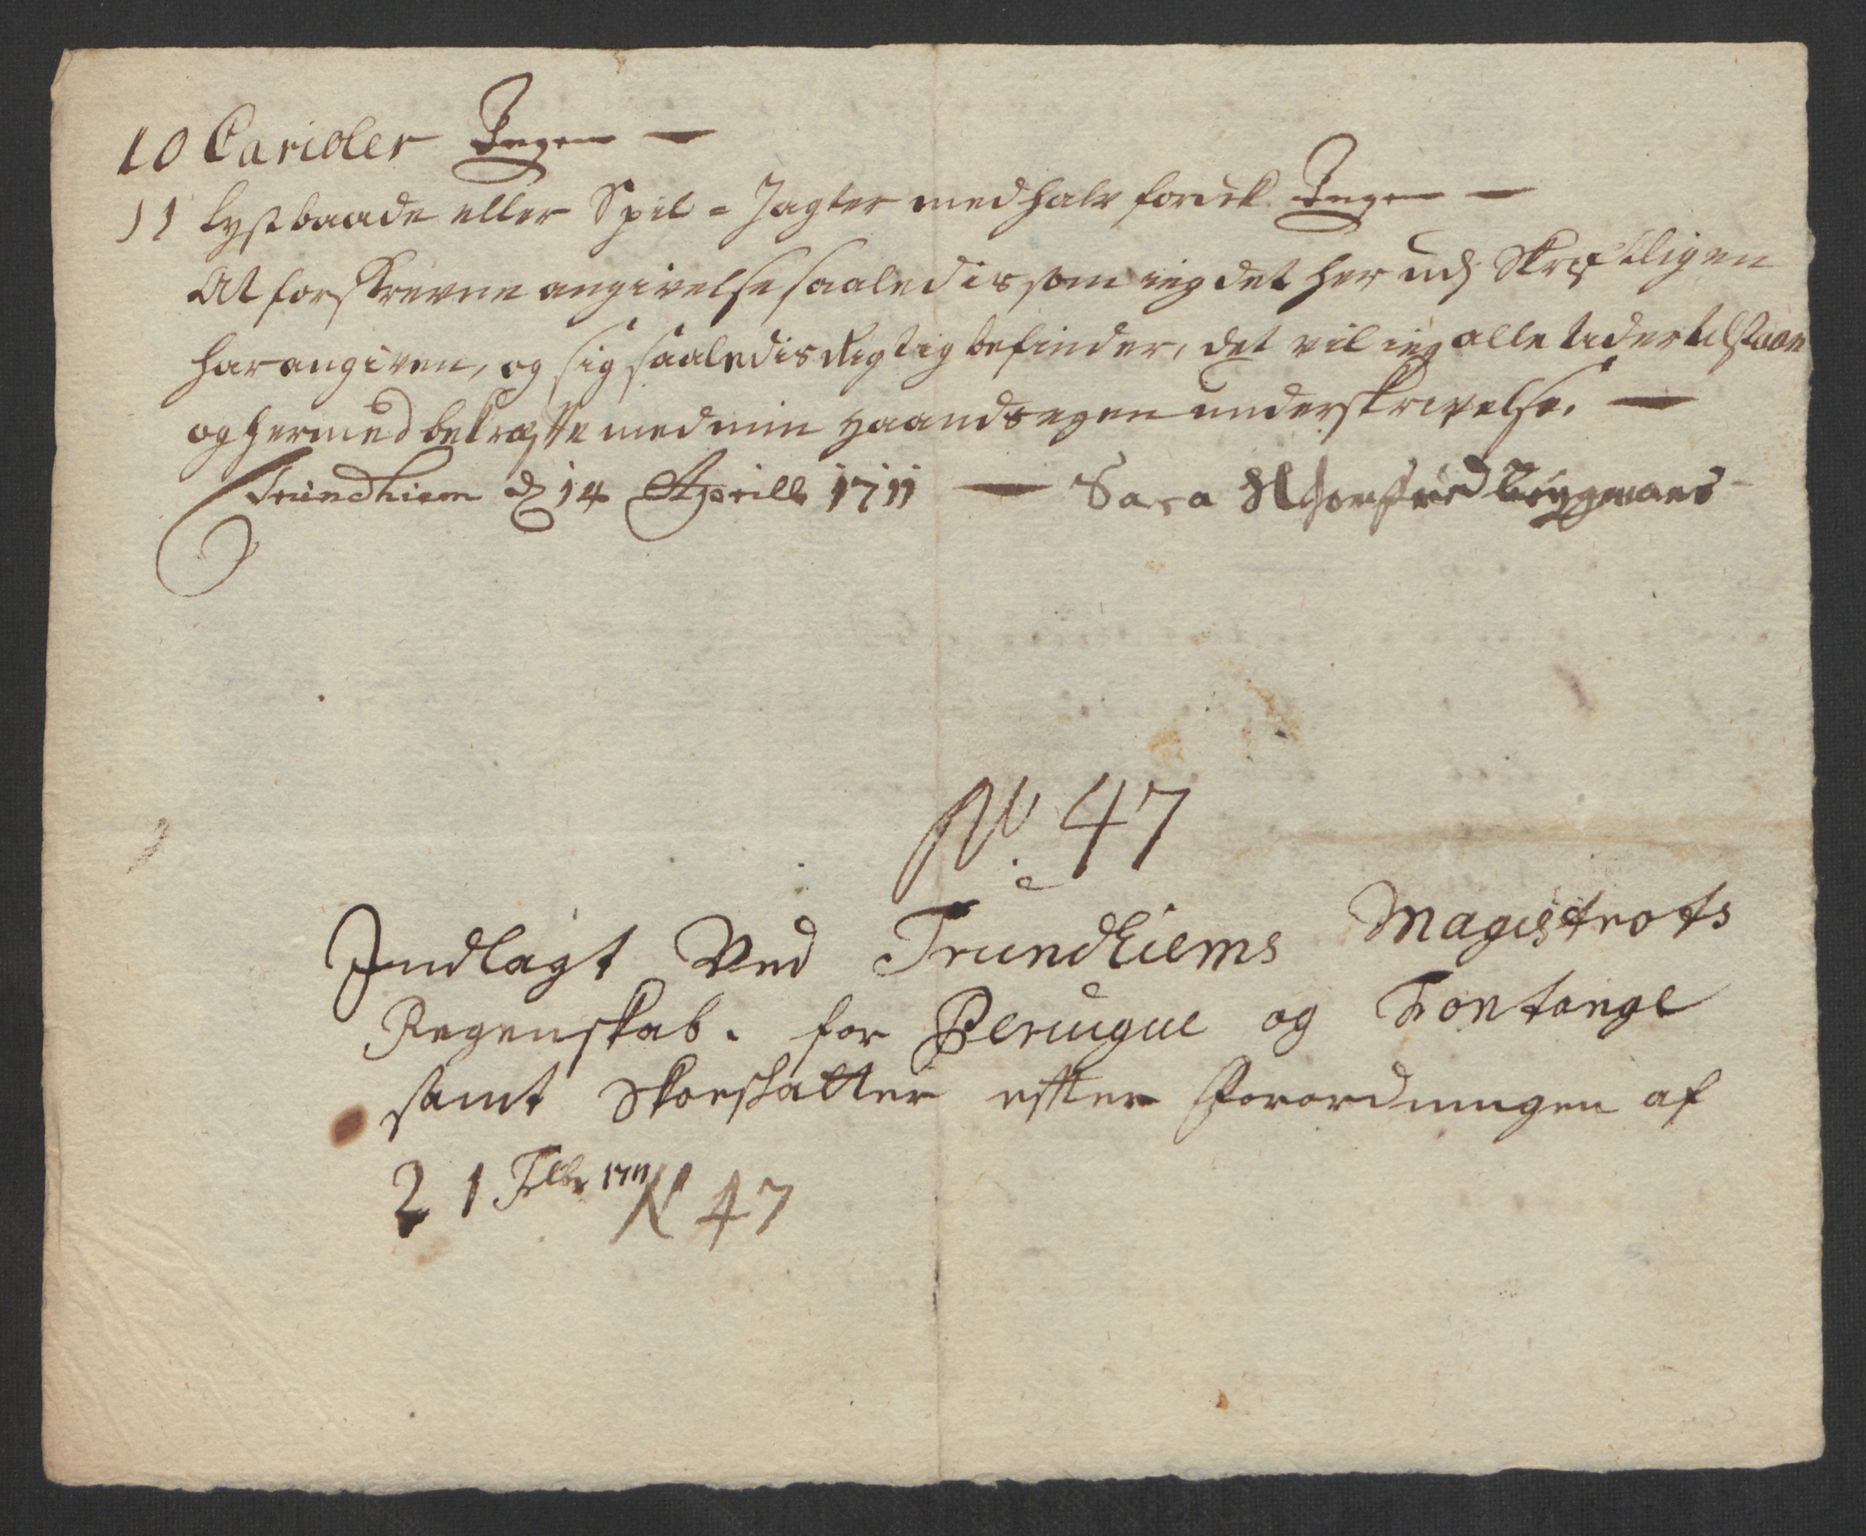 10 Carioler Ingen —
11 Lystbaade eller Spil = Jagter med halv fordek Ingen —
At forskrevne angivelse saaledis som ieg det her udj Skriftligen
har angiven, og sig saaledis Rigtig befinder, det vil ieg alle tider tilstaae
og hermed bekræfte med min Haands egen underskrivelse. —
Trundhiem d 14 Aprill 1711 — Sara
No. 47
Indlagt Ved Trundhiems Magistrats
Regenskab. for Peruque og Fontange
samt Skoeskatter efter Forordningen af
21 Febr 1711 N 47